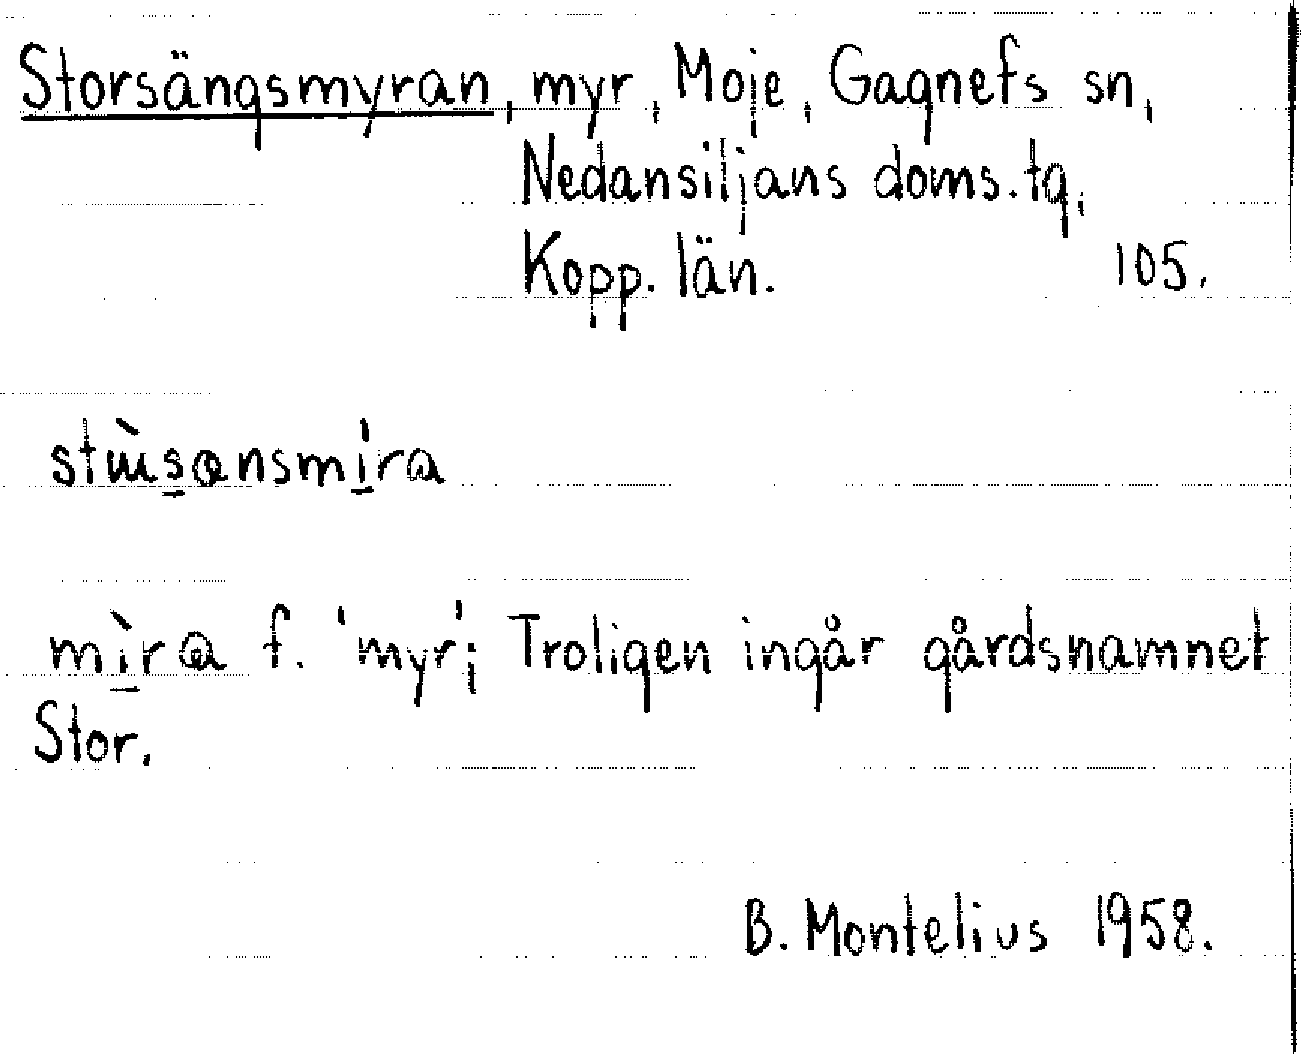 Storsängsmyran, myr, Moje, Gagnefs sn,
Nedansiljans doms.tg,
Kopp. län. 105.
mìra f. 'myr'; Troligen ingår gårdsnamnet
Stor.
B. Montelius 1958.